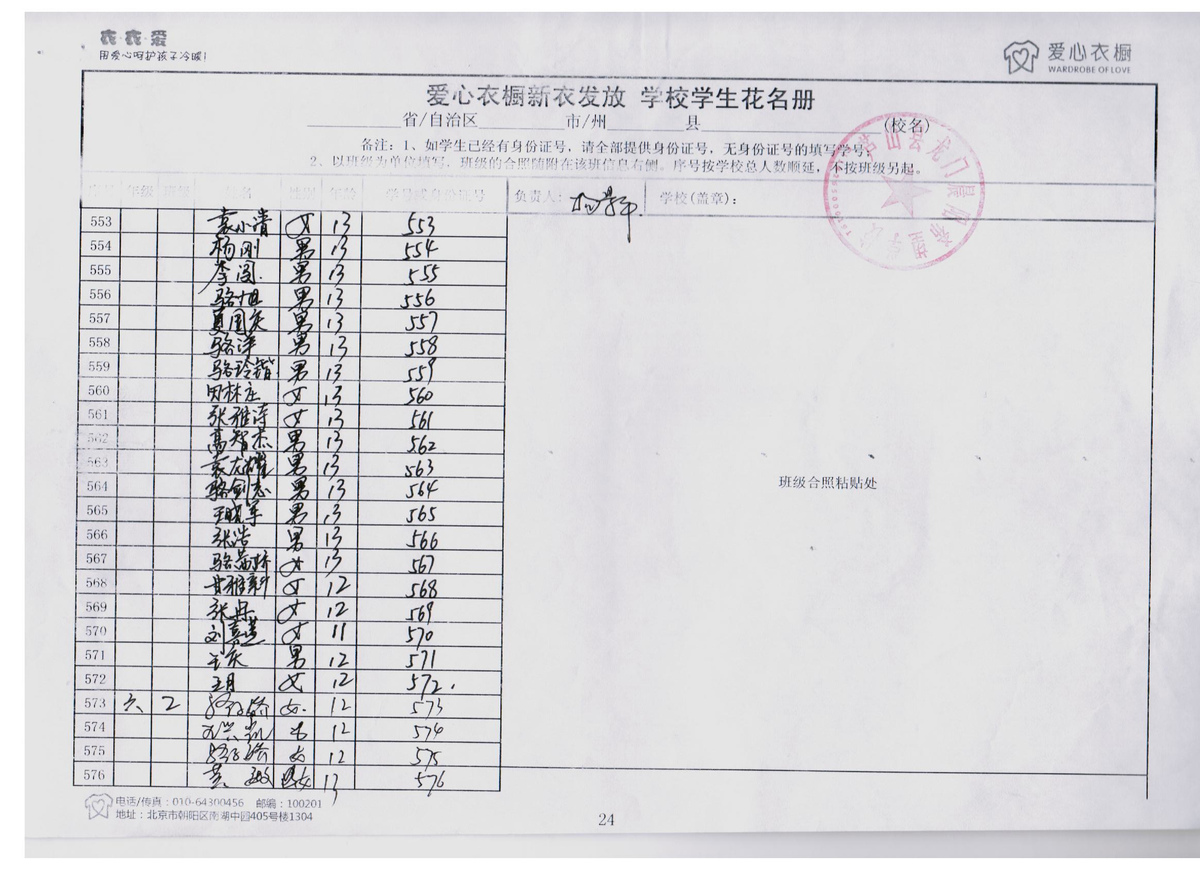 衣·衣·爱
用爱心呵护孩子冷暖!
爱心衣橱
WARDROBE OF LOVE
爱心衣橱新衣发放 学校学生花名册
省/自治区 市/州 县 (校名)
备注: 1、如学生已经有身份证号, 请全部提供身份证号, 无身份证号的填写学号;
2、以班级为单位填写, 班级的合照随附在该班信息右侧。序号按学校总人数顺延, 不按班级另起。
序号 年级 班级 姓名 性别 年龄 学号或身份证号 负责人: 学校(盖章):
553 袁小清 女 13 553
554 杨刚 男 13 554
555 李闯 男 13 555
556 骆旭 男 13 556
557 夏国庆 男 13 557
558 骆洋 男 13 558
559 骆玲锴 男 13 559
560 田林庄 女 13 560
561 张雅涛 女 13 561
562 高智杰 男 13 562
563 袁友耀 男 13 563
564 骆剑志 男 13 564
565 王晓军 男 13 565
566 张浩 男 13 566
567 骆茜娇 女 13 567
568 甘雅新 女 12 568
569 张典 女 12 569
570 刘真芸 女 11 570
571 王庆 男 12 571
572 王月 女 12 572.
573 六 2 女 12 573
574 12 574
575 女 12 575
576 女 13 576
班级合照粘贴处
电话/传真: 010-64300456 邮编: 100201
地址: 北京市朝阳区南湖中园405号楼1304
24